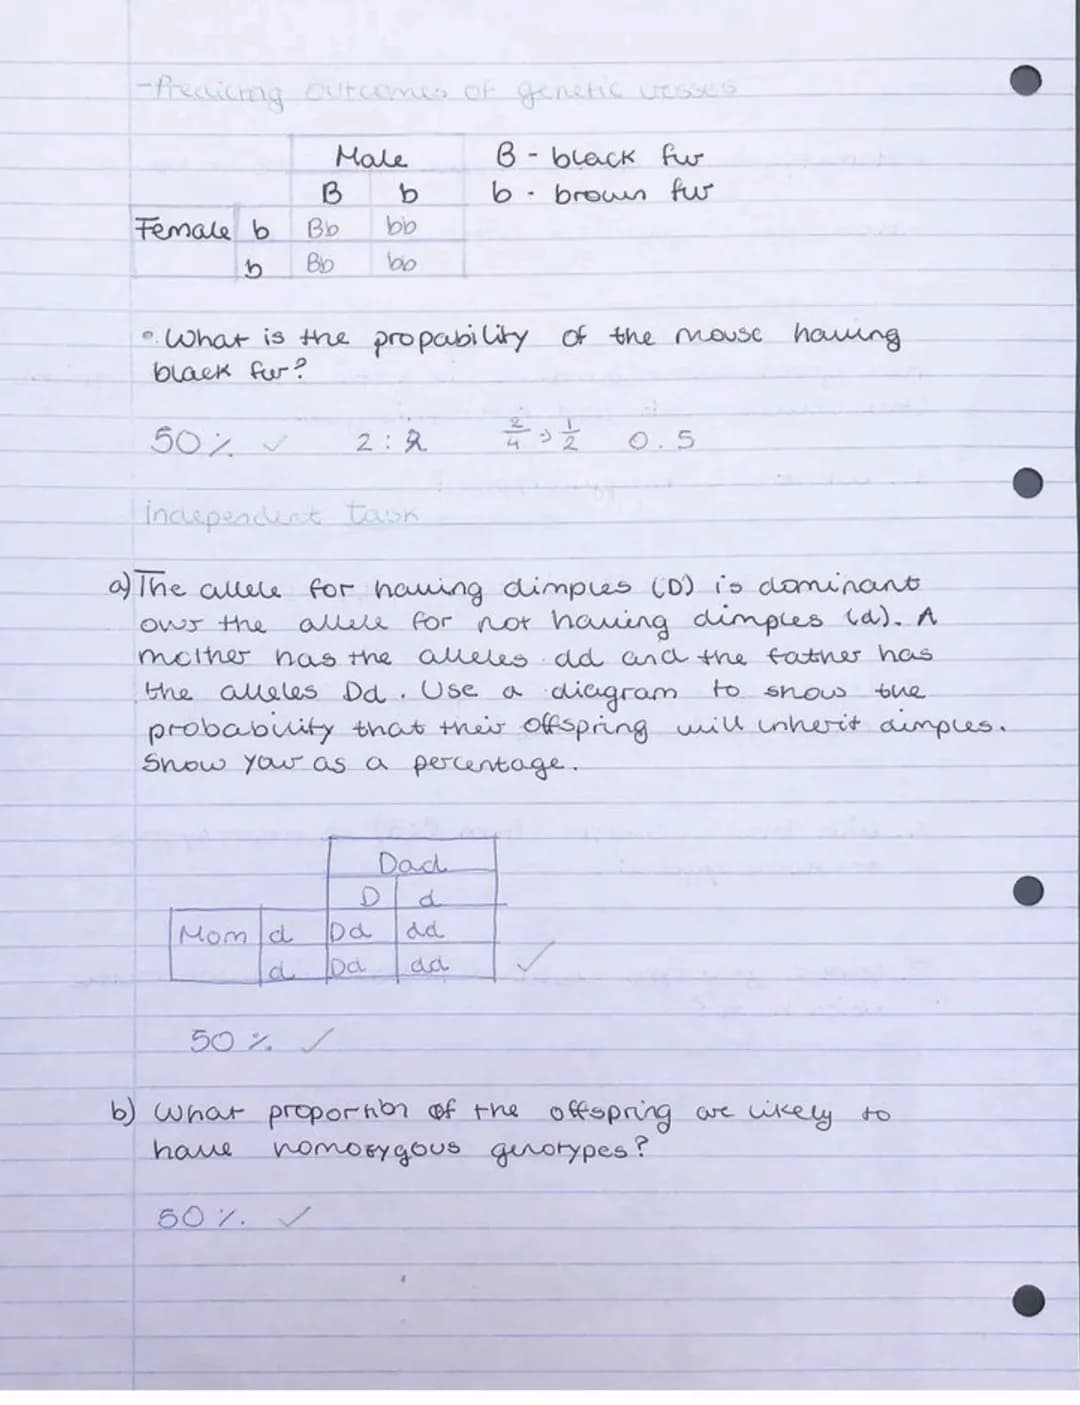 -Predicting outcomes of genetic crosses
Male
B b
Female b Bb bb
b Bb bb
B - black fur
b - brown fur
• What is the propability of the mouse having
black fur?
50% ✓ 2:2 2/4 => 1/2 0.5
independent task
a) The allele for having dimples (D) is dominant
over the allele for not having dimples (d). A
mother has the alleles dd and the father has
the alleles Dd. Use a diagram to show the
probability that their offspring will inherit dimples.
Show your as a percentage.
Dad
D d
Mom d Dd dd
d Dd dd ✓
50% ✓
b) What proportion of the offspring are likely to
have homozygous genotypes?
50%. ✓